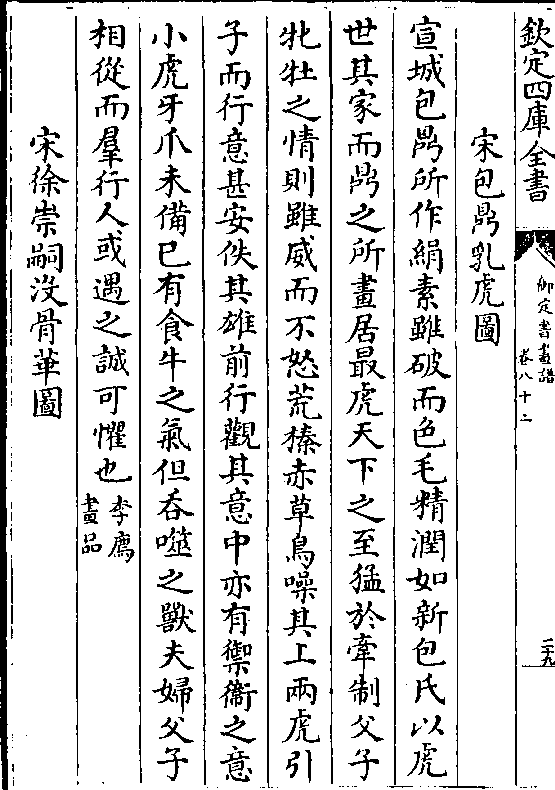 欽定四庫全書
御定書畫譜
卷八十二
二十九
宋包鼎乳虎圖
宣城包鼎所作絹素雖破而色毛精潤如新包氏以虎
世其家而鼎之所畫居最虎天下之至猛於牽制父子
牝牡之情則雖威而不怒荒榛赤草鳥噪其上兩虎引
子而行意甚安佚其雄前行觀其意中亦有禦衞之意
小虎牙爪未備已有食牛之氣但吞噬之獸夫婦父子
相從而羣行人或遇之誠可懼也李廌
畫品
宋徐崇嗣沒骨華圖